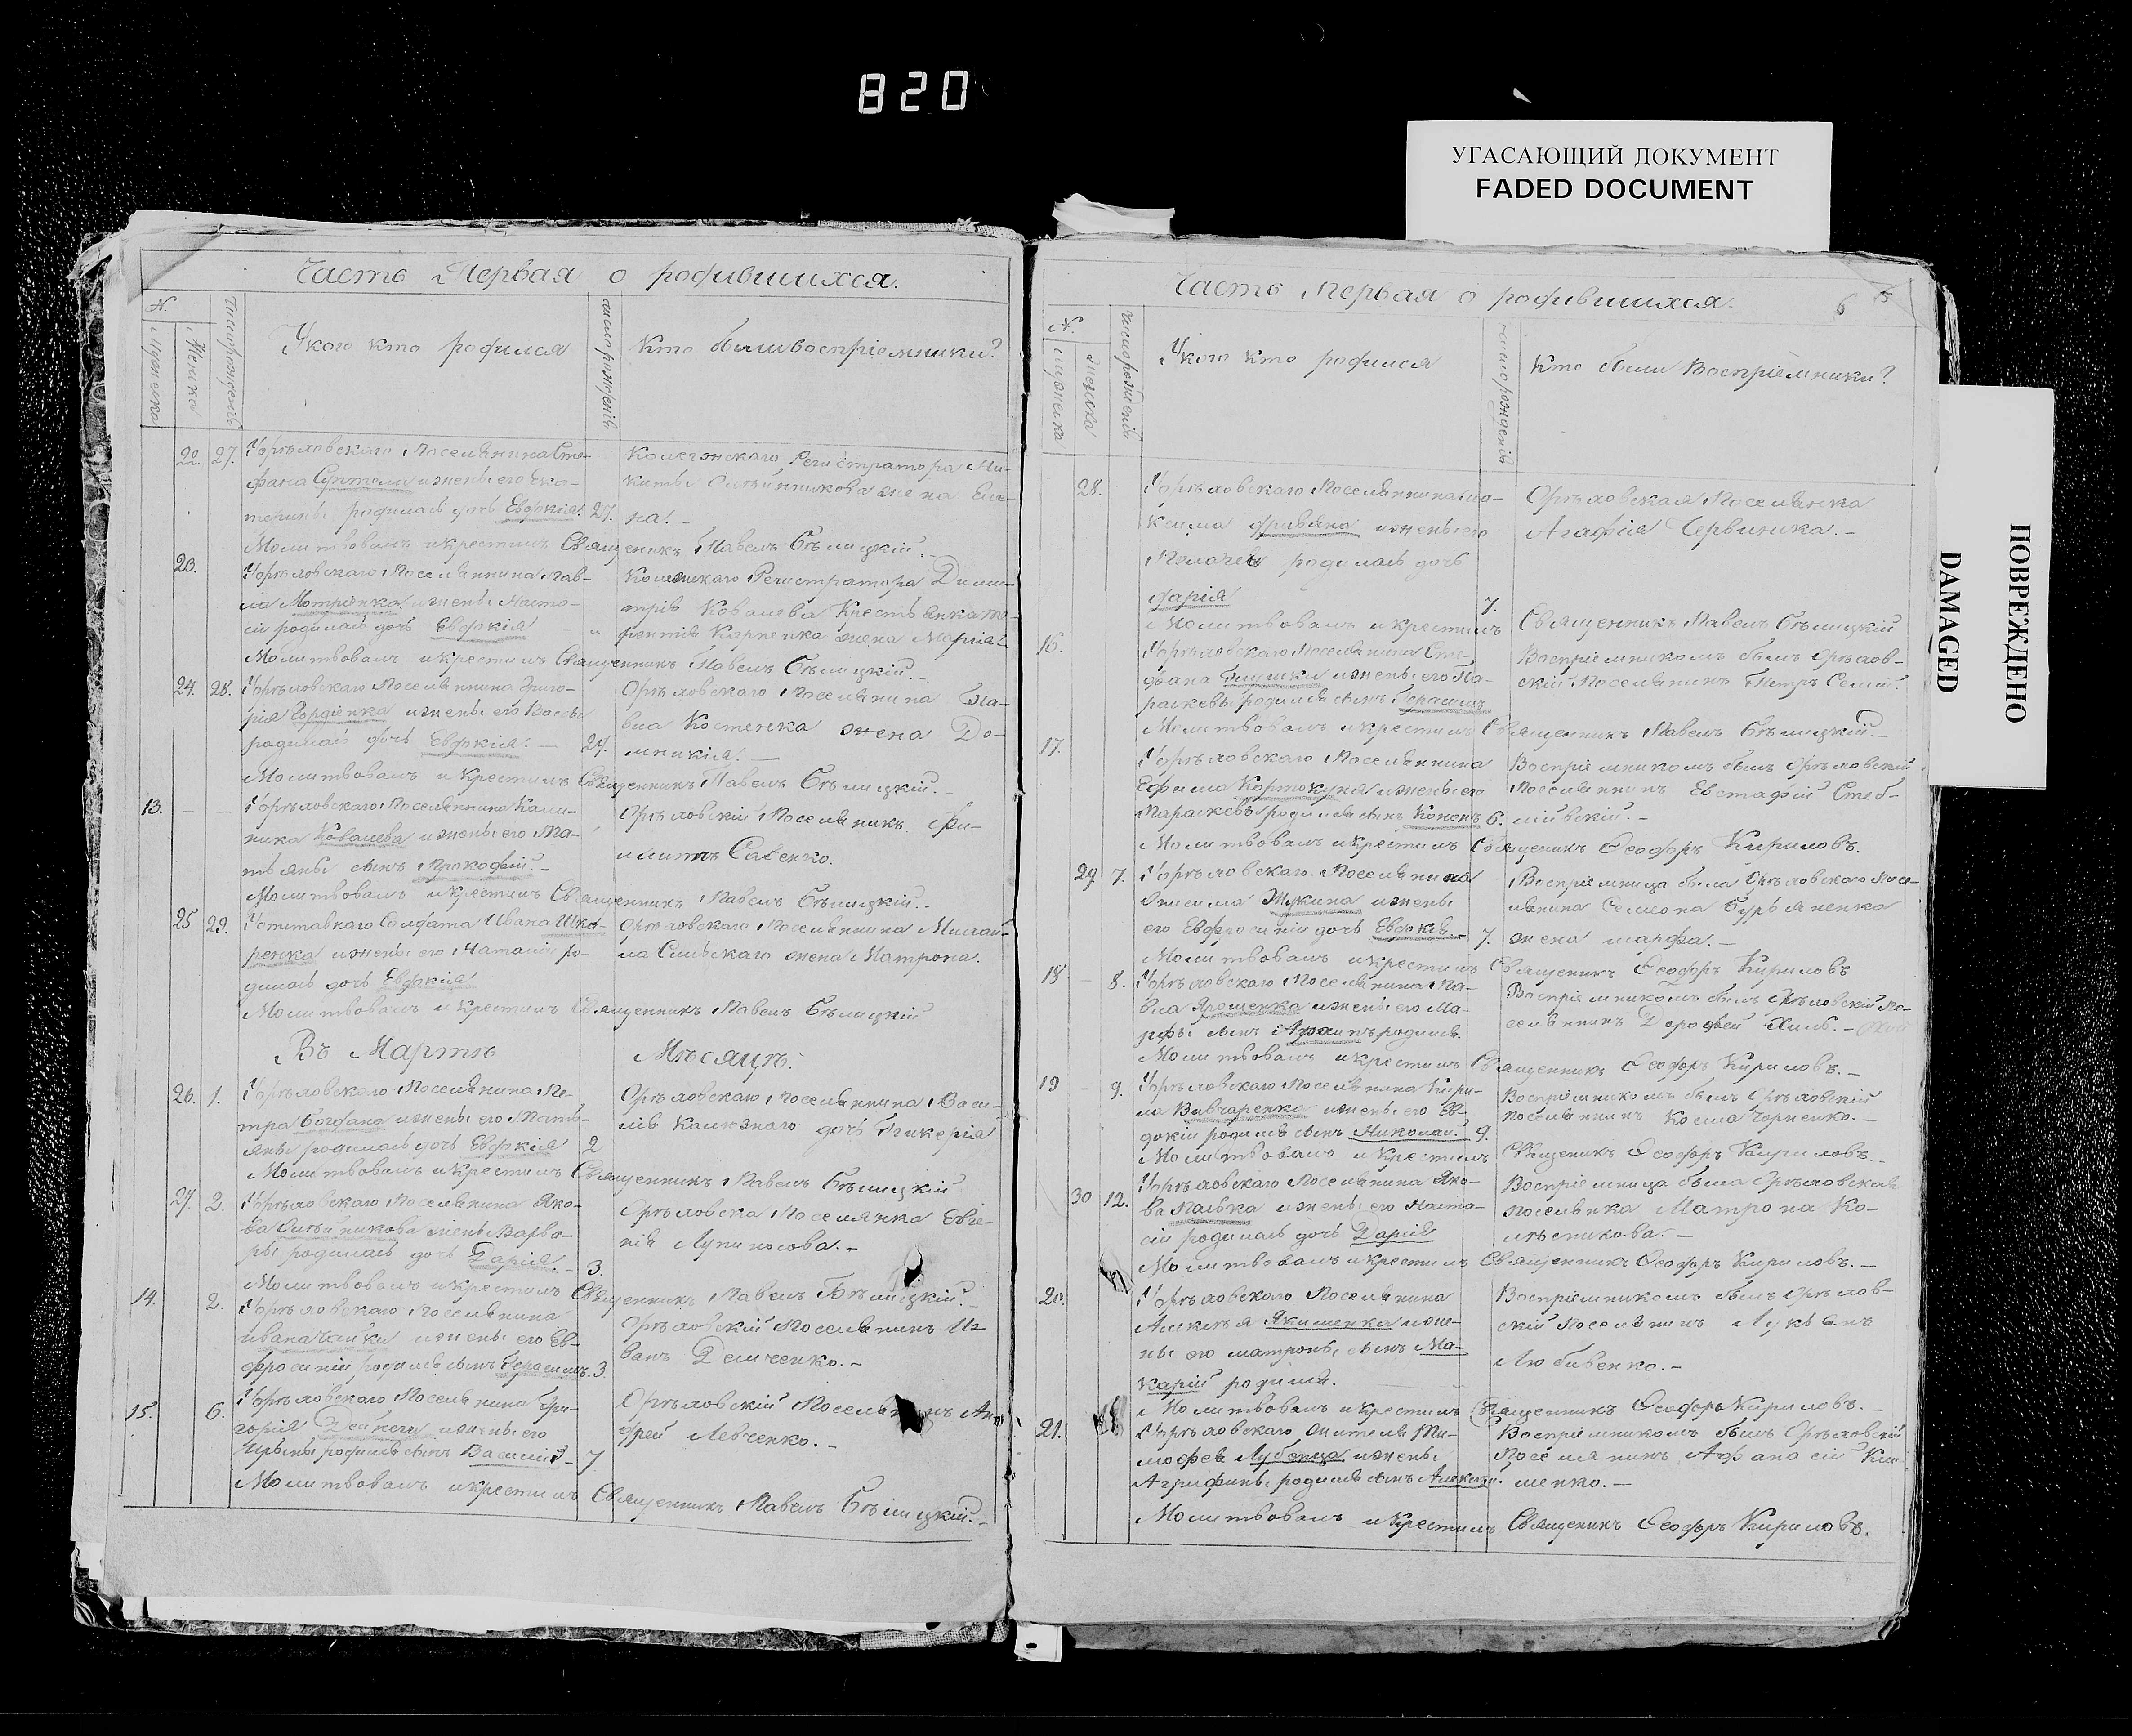 820
УГАСАЮЩИЙ ДОКУМЕНТ
FADED DOCUMENT
ПОВРЕЖДЕНО
DAMAGED
Часть Первая о родившихся.
N.
Женска
У кого кто родился
Кто были воспріемники?
22. 27. У орѣловскаго Поселянина Сте-
фана и жены его Ека-
терины родилась дочь Евдокія. 27.
Колежскаго Регистратора Ни-
киты Олѣйникова жена Еле-
на. -
Молитвовалъ и крестилъ Священникъ Павелъ Бѣлицкій. -
23. У орѣловскаго Поселянина Пав-
ла Мотріенка и жены Наста-
сіи родилась дочь Евдокія "
Колежскаго Регистратора Дими-
трія Ковалева Крестьянка
Карпенка жена Марія. -
Молитвовалъ и крестилъ Священникъ Павелъ Бѣлицкій. -
24. 28. У орѣловскаго Поселянина Григо-
рія Гордіенка и жены его
родилась дочь Евдокія. - 29.
Орѣловскаго Поселянина Па-
вла Костенка жена До-
мникія. -
Молитвовалъ и крестилъ Священникъ Павелъ Бѣлицкій. -
13. - - У орѣловскаго Поселянина Кали-
ника Ковалева и жены его Та-
тьяны сынъ Прокофій. -
Орѣловскій Поселянинъ Фи-
липпъ Савенко.
Молитвовалъ и крестилъ Священникъ Павелъ Бѣлицкій. -
25 29. У отставнаго Солдата Ивана Шка-
ренка и жены его Наталіи ро-
дилась дочь Евдокія
Орѣловскаго Поселянина Михай-
ла жена Матрона.
Молитвовалъ и крестилъ Священникъ Павелъ Бѣлицкій
Въ Мартѣ Мѣсяцѣ.
26. 1. У орѣловскаго Поселянина Пе-
тра Богдана и жены его Тать-
яны родилась дочь Евдокія 2
Орѣловскаго Поселянина Васи-
лія дочь Гликерія
Молитвовалъ и крестилъ Священникъ Павелъ Бѣлицкій
27. 2. У орѣловскаго Поселянина Яко-
ва Олѣйникова жены Варва-
ры родилась дочь Дарія. - 3.
Орѣловска Поселянка Евге-
нія Лупиносова. -
Молитвовалъ и крестилъ Священникъ Павелъ Бѣлицкій. -
14. 2. У орѣловскаго Поселянина
Ивана Чайки и жены его Ев-
фросиніи родился сынъ Герасимъ. 3.
Орѣловскій Поселянинъ И-
ванъ Демченко. -
15. 6. У орѣловскаго Поселянина Гри-
горія и жены его
Ирины родился сынъ Василій - 7
Орѣловскій Поселянинъ Ан-
дрей Левченко. -
Молитвовалъ и крестилъ Священникъ Павелъ Бѣлицкій. -
Часть Первая о родившихся. 6
N.
У кого кто родился
Кто были Воспріемники?
28. У орѣловскаго Поселянина
и жены его
родилась дочь
Дарія 7.
Орѣловская Поселянка
Агафія Червинка. -
Молитвовалъ и крестилъ Священникъ Павелъ Бѣлицкій
16. У орѣловскаго Поселянина Сте-
фана Глушка и жены его Па-
раскевы родился сынъ Герасимъ
Воспріемникомъ былъ Орѣлов-
скій Поселянинъ Петръ
Молитвовалъ и крестилъ Священникъ Павелъ Бѣлицкій. -
17. У орѣловскаго Поселянина
Ефима и жены его
Параскевы родился сынъ Кононъ 6.
Воспріемникомъ былъ Орѣловскій
Поселянинъ Евстафій Стеб-
лівскій. -
Молитвовалъ и крестилъ Священикъ Феодоръ Кириловъ.
29 7. У орѣловскаго Поселянина
Анисима Жукина и жены
его Евфросиніи дочь 7.
Воспріемница была Орѣловскаго Посе-
лянина Семеона Бурьяненка
жена Марфа. -
Молитвовалъ и крестилъ Священикъ Феодоръ Кириловъ
18 - 8. У орѣловскаго Поселянина Па-
вла Ярошенка и жены его Ма-
рфы сынъ родился.
Воспріемникомъ былъ Орѣловскій По-
селянинъ Дорофей
Молитвовалъ и крестилъ Священникъ Феодоръ Кириловъ. -
19 - 9. У орѣловскаго Поселянина Кири-
ла Вивчаренка и жены его Ев-
докіи родился сынъ Николай. 9.
Воспріемникомъ былъ Орѣловскій
поселянинъ Косма Черненко. -
Молитвовалъ и крестилъ Священикъ Феодоръ Кириловъ. -
30 12. У орѣловскаго Поселянина Яко-
ва Палѣка и жены его Наста-
сіи родилась дочь Дарія
Воспріемница была Орѣловская
поселянка Матрона Ко-
лѣсникова. -
Молитвовалъ и крестилъ Священикъ Феодоръ Кириловъ. -
20. У орѣловскаго Поселянина
Алексѣя Якименка и же-
ны его Матроны сынъ Ма-
карій родился.
Воспріемникомъ былъ Орѣлов-
скій Поселянинъ Лукьянъ
Любивенко. -
Молитвовалъ и крестилъ Священикъ Феодоръ Кириловъ. -
21. У орѣловскаго жителя Ти-
мофея Лубенца и жены
Агрифины родился сынъ Алексѣй.
Воспріемникомъ былъ Орѣловскій
Поселянинъ Афанасій Кли-
менко. -
Молитвовалъ и крестилъ Священикъ Феодоръ Кириловъ.